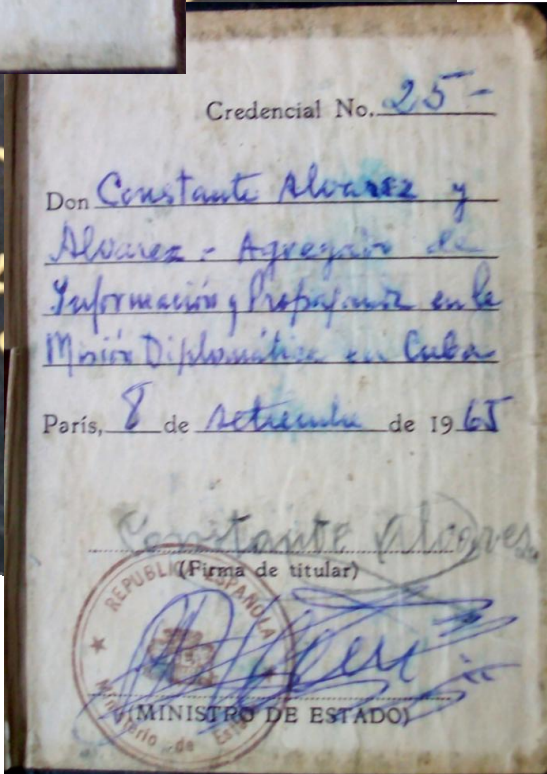 Credencial No. 25-
Don Constante Alvarez y
Alvarez - Agregado de
Información y Propaganda en la
Misión Diplomática en Cuba
París, 8 de setiembre de 1965
Constante Alvares
(Firma de titular)
REPUBLICA ESPAÑOLA
(MINISTRO DE ESTADO)
Ministerio de Estado